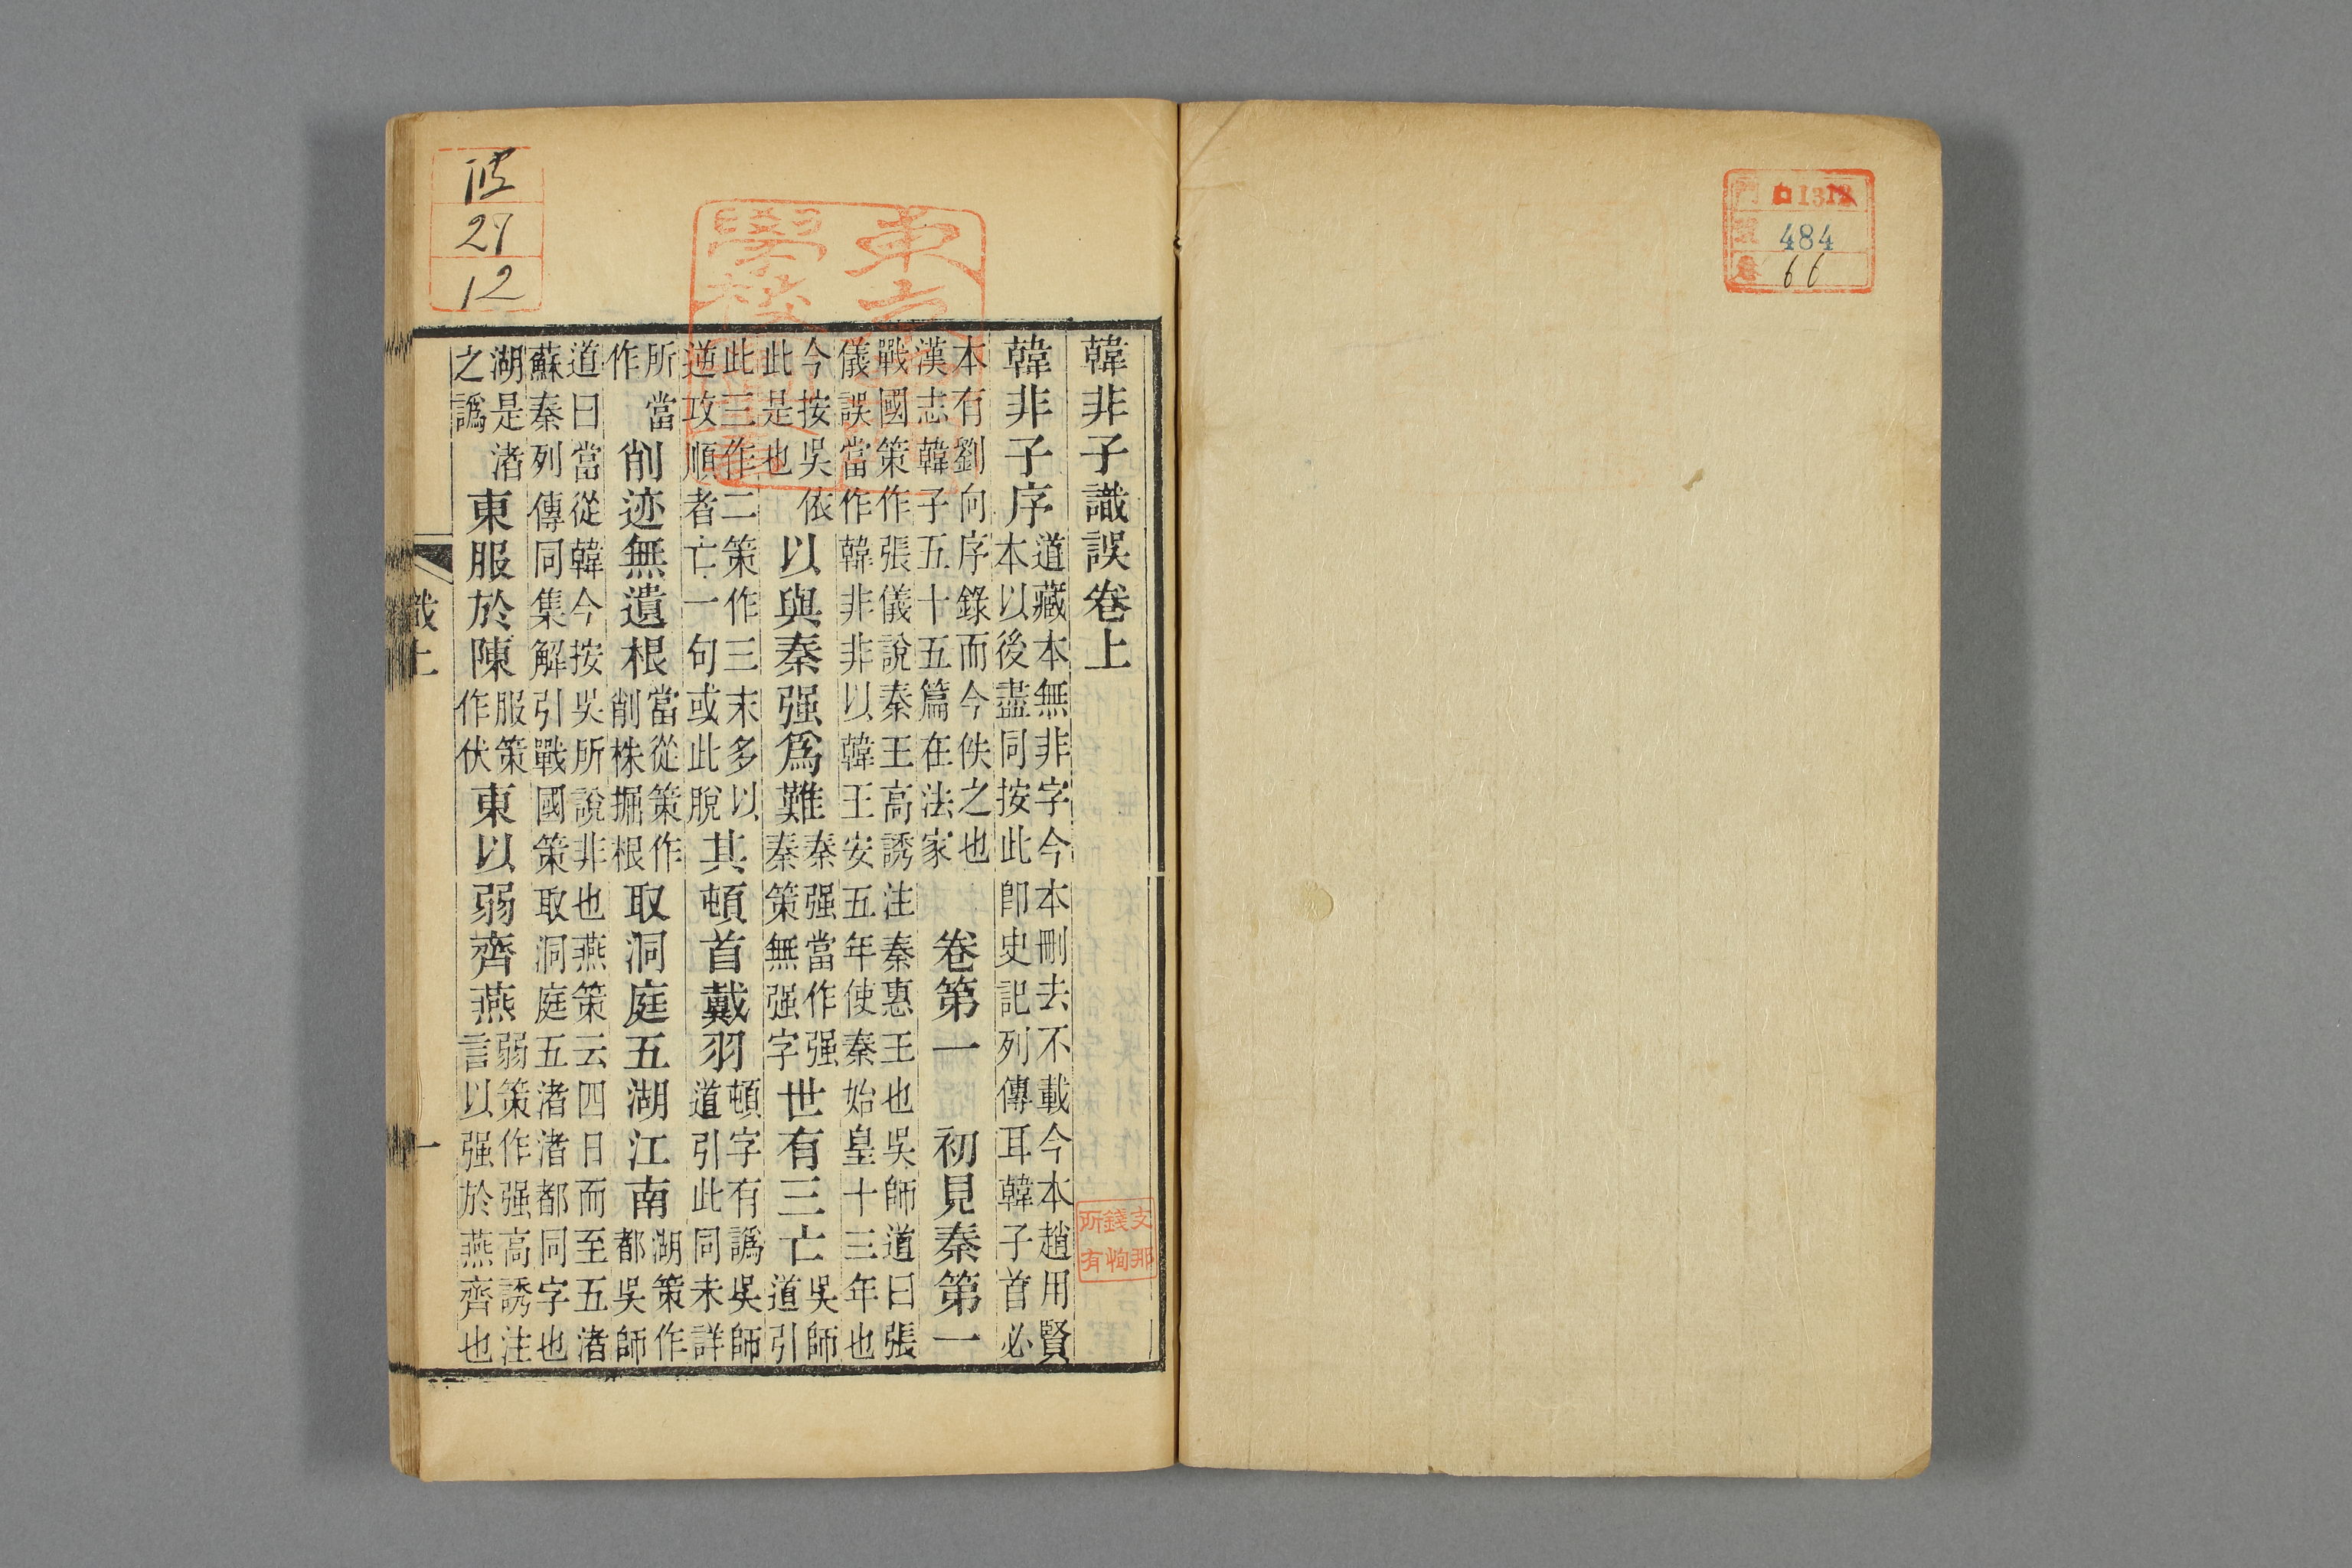 門
484
卷 66
韓非子識誤卷上
韓非子序道藏本無非字今本刪去不載今本趙用賢本以後盡同按此卽史記列傳耳韓子首必
本有劉向序錄而今佚之也漢志韓子五十五篇在法家 卷第一 初見秦第一
戰國策作張儀說秦王高誘注秦惠王也吳師道曰張儀誤當作韓非非以韓王安五年使秦始皇十三年也
今按吳依此是也以與秦强爲難秦强當作强秦策無强字世有三亡吳師道引
此三作二策作三末多以逆攻順者亡一句或此脫其頓首戴羽頓字有譌吳師道引此同未詳
所當作削迹無遺根當從策作削株掘根取洞庭五湖江南湖策作都吳師
道曰當從韓今按吳所說非也燕策云四日而至五渚蘇秦列傳同集解引戰國策取洞庭五渚渚都同字也
湖是渚之譌東服於陳服策作伏東以弱齊燕弱策作强高誘注言以强於燕齊也
識上
一
支那
錢恂
所有
12